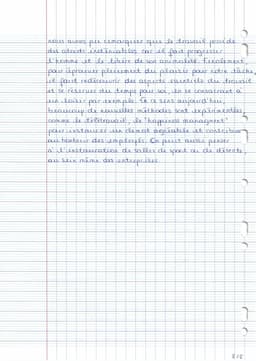 nous avons pu remarquer que le travail possède
des atouts indéniables car il fait progresser
l'homme et le libère de son animalité. Finalement,
pour éprouver pleinement du plaisir pour notre tâche,
il faut redécouvrir des aspects essentiels du travail
et se réserver du temps pour soi, en se consacrant à
un loisir par exemple. En ce sens aujourd'hui,
beaucoup de nouvelles méthodes sont expérimentées,
comme le télétravail, le "happiness management"
pour instaurer un climat agréable et contribuer
au bonheur des employés. On peut aussi penser
à l'instauration de salles de sport ou de détente,
au sein même des entreprises.
8/8